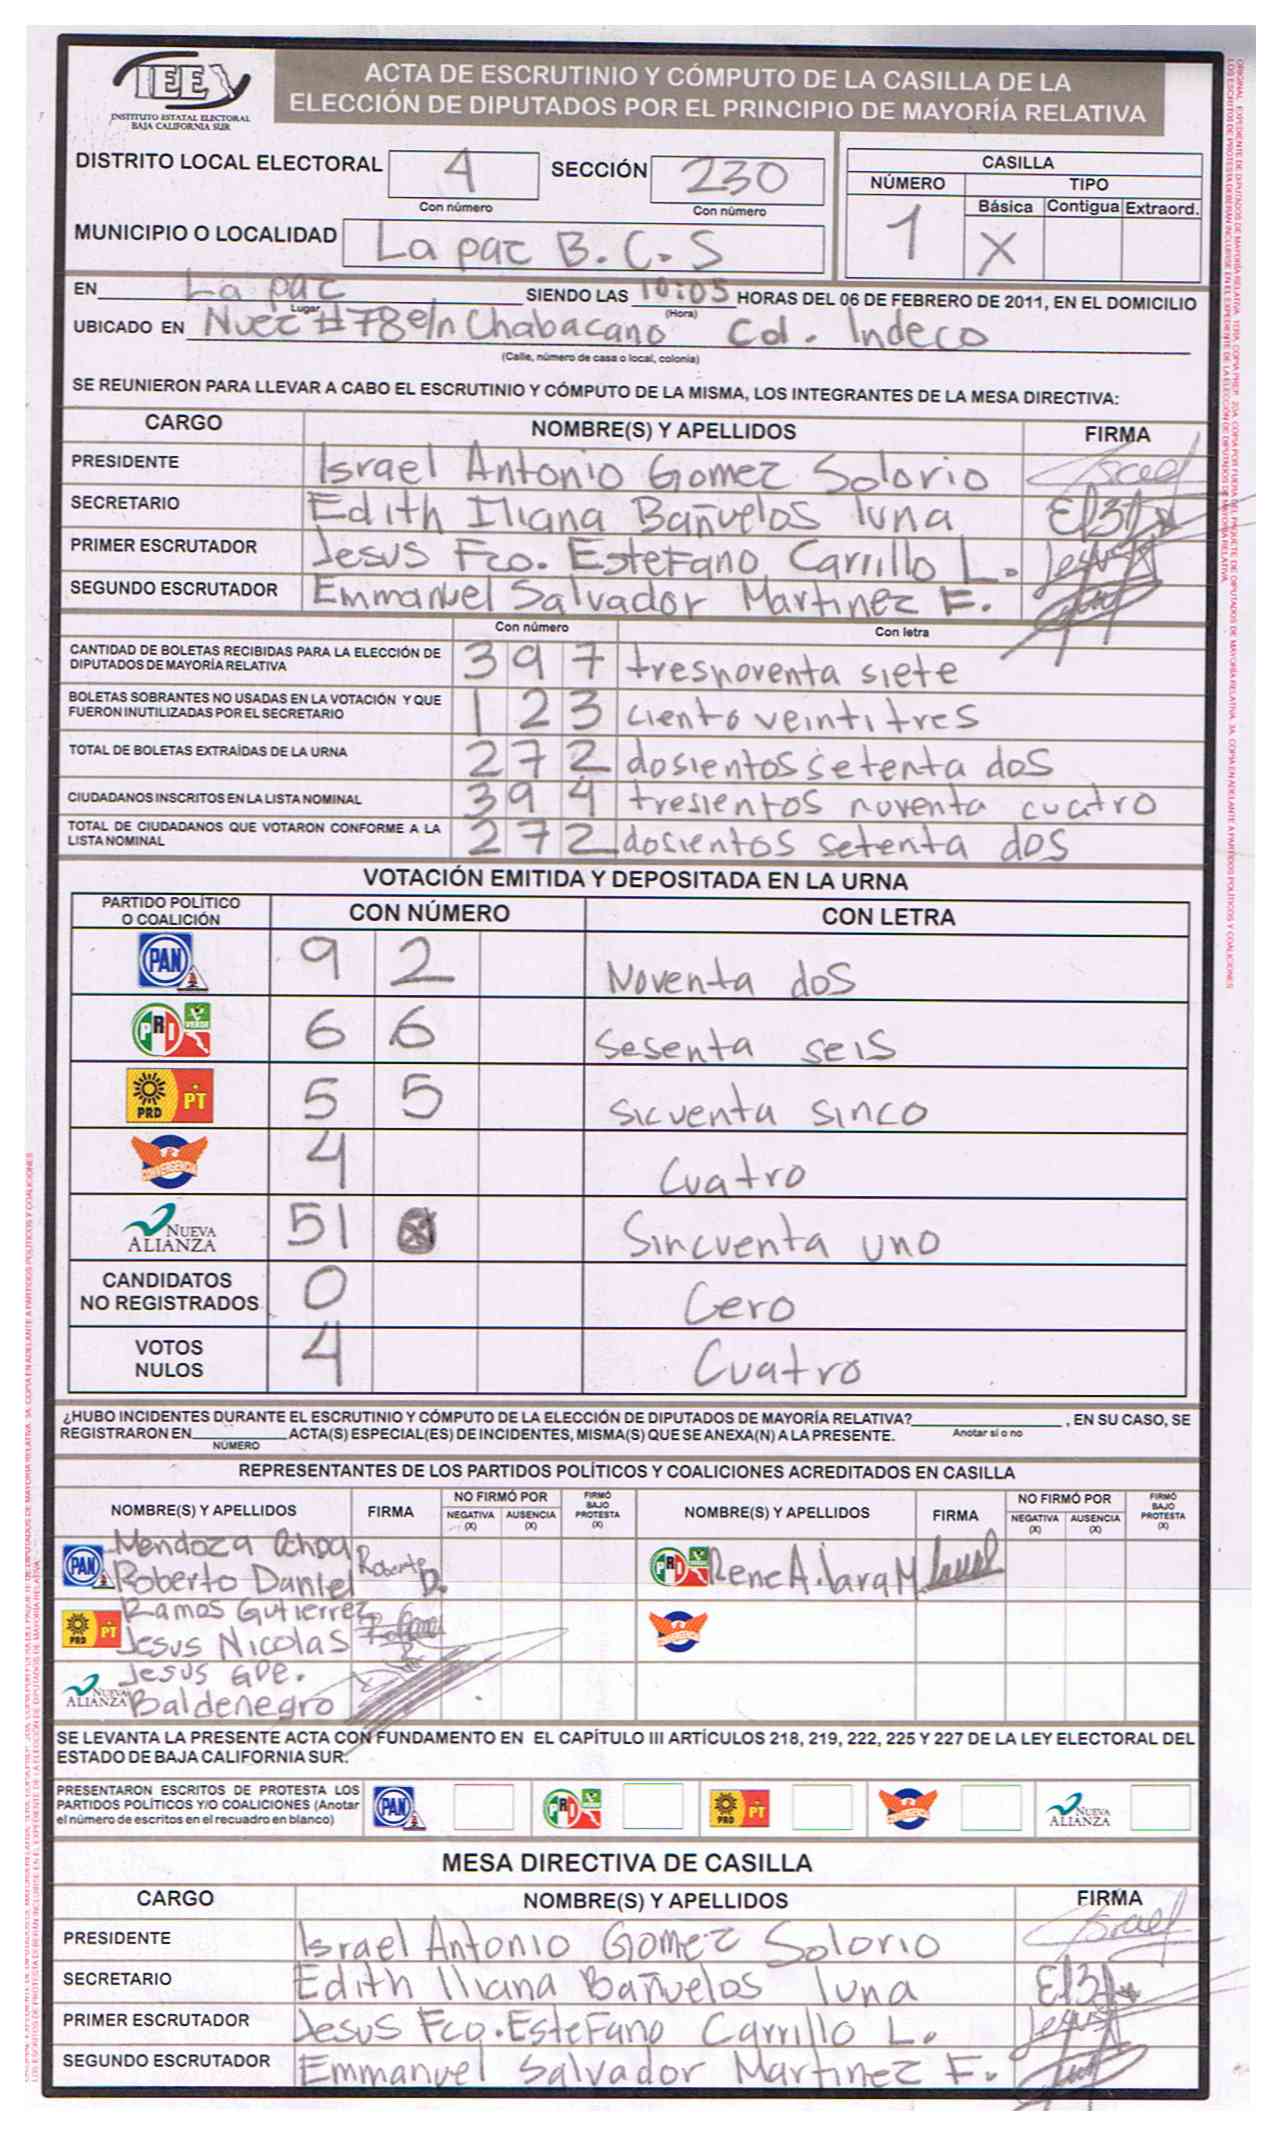 IEE
INSTITUTO ESTATAL ELECTORAL
BAJA CALIFORNIA SUR
ACTA DE ESCRUTINIO Y CÓMPUTO DE LA CASILLA DE LA
ELECCIÓN DE DIPUTADOS POR EL PRINCIPIO DE MAYORÍA RELATIVA
DISTRITO LOCAL ELECTORAL 4 SECCIÓN 230
Con número Con número
CASILLA
NÚMERO TIPO
Básica Contigua Extraord.
1 X
MUNICIPIO O LOCALIDAD La paz B.C.S
EN La paz SIENDO LAS 10:05 HORAS DEL 06 DE FEBRERO DE 2011, EN EL DOMICILIO
Lugar (Hora)
UBICADO EN Nuez #78 e/n Chabacano Col. Indeco
(Calle, número de casa o local, colonia)
SE REUNIERON PARA LLEVAR A CABO EL ESCRUTINIO Y CÓMPUTO DE LA MISMA, LOS INTEGRANTES DE LA MESA DIRECTIVA:
CARGO NOMBRE(S) Y APELLIDOS FIRMA
PRESIDENTE Israel Antonio Gomez Solorio Israel
SECRETARIO Edith Iliana Bañuelos luna
PRIMER ESCRUTADOR Jesus Fco. Estefano Carrillo L. Jesus
SEGUNDO ESCRUTADOR Emmanuel Salvador Martinez F.
Con número Con letra
CANTIDAD DE BOLETAS RECIBIDAS PARA LA ELECCIÓN DE
DIPUTADOS DE MAYORÍA RELATIVA 397 tresnoventa siete
BOLETAS SOBRANTES NO USADAS EN LA VOTACIÓN Y QUE
FUERON INUTILIZADAS POR EL SECRETARIO 123 ciento veintitres
TOTAL DE BOLETAS EXTRAÍDAS DE LA URNA 272 dosientos setenta dos
CIUDADANOS INSCRITOS EN LA LISTA NOMINAL 394 tresientos noventa cuatro
TOTAL DE CIUDADANOS QUE VOTARON CONFORME A LA
LISTA NOMINAL 272 dosientos setenta dos
VOTACIÓN EMITIDA Y DEPOSITADA EN LA URNA
PARTIDO POLÍTICO
O COALICIÓN CON NÚMERO CON LETRA
PAN 9 2 Noventa dos
PRI VERDE 6 6 Sesenta seis
PRD PT 5 5 sicuenta sinco
CONVERGENCIA 4 Cuatro
NUEVA ALIANZA 51 Sincuenta uno
CANDIDATOS
NO REGISTRADOS 0 Cero
VOTOS
NULOS 4 Cuatro
¿HUBO INCIDENTES DURANTE EL ESCRUTINIO Y CÓMPUTO DE LA ELECCIÓN DE DIPUTADOS DE MAYORÍA RELATIVA? , EN SU CASO, SE
Anotar sí o no
REGISTRARON EN ACTA(S) ESPECIAL(ES) DE INCIDENTES, MISMA(S) QUE SE ANEXA(N) A LA PRESENTE.
NÚMERO
REPRESENTANTES DE LOS PARTIDOS POLÍTICOS Y COALICIONES ACREDITADOS EN CASILLA
NOMBRE(S) Y APELLIDOS FIRMA NO FIRMÓ POR NEGATIVA (X) AUSENCIA (X) FIRMÓ BAJO PROTESTA (X) NOMBRE(S) Y APELLIDOS FIRMA NO FIRMÓ POR NEGATIVA (X) AUSENCIA (X) FIRMÓ BAJO PROTESTA (X)
PAN Mendoza Ochoa
Roberto Daniel Roberto D. PRI Rene A. Jara M.
PRD PT Ramos Gutierrez
Jesus Nicolas CONVERGENCIA
NUEVA ALIANZA Jesus GPE.
Baldenegro
SE LEVANTA LA PRESENTE ACTA CON FUNDAMENTO EN EL CAPÍTULO III ARTÍCULOS 218, 219, 222, 225 Y 227 DE LA LEY ELECTORAL DEL
ESTADO DE BAJA CALIFORNIA SUR:
PRESENTARON ESCRITOS DE PROTESTA LOS
PARTIDOS POLÍTICOS Y/O COALICIONES (Anotar
el número de escritos en el recuadro en blanco) PAN PRI PRD PT CONVERGENCIA NUEVA ALIANZA
MESA DIRECTIVA DE CASILLA
CARGO NOMBRE(S) Y APELLIDOS FIRMA
PRESIDENTE Israel Antonio Gomez Solorio Israel
SECRETARIO Edith Iliana Bañuelos luna
PRIMER ESCRUTADOR Jesus Fco. Estefano Carrillo L. Jesus
SEGUNDO ESCRUTADOR Emmanuel Salvador Martinez F.